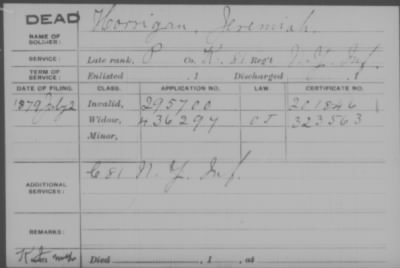 DEAD
NAME OF SOLDIER: Horrigan, Jeremiah.
SERVICE: Late rank, P Co. K. 81 Reg't N.Y. Inf.
TERM OF SERVICE: Enlisted , 1 Discharged , 1
DATE OF FILING. CLASS. APPLICATION NO. LAW. CERTIFICATE NO.
1879 July 2 Invalid, 295700 201846
Widow, 436297 323563
Minor,
ADDITIONAL SERVICES: C 81 N.Y. Inf.
REMARKS:
Died , 1 , at